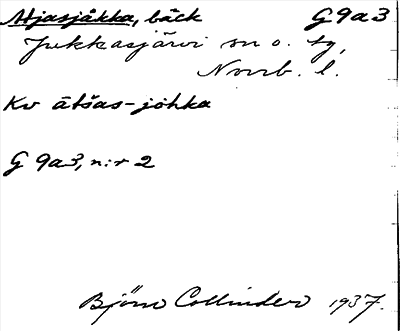 Atjasjåkka, bäck G9a3
Jukkasjärvi sn o. tg,
Norrb. l.
Kv ātšas-johka
G 9a3, n:r 2
Björn Collinder 1937.